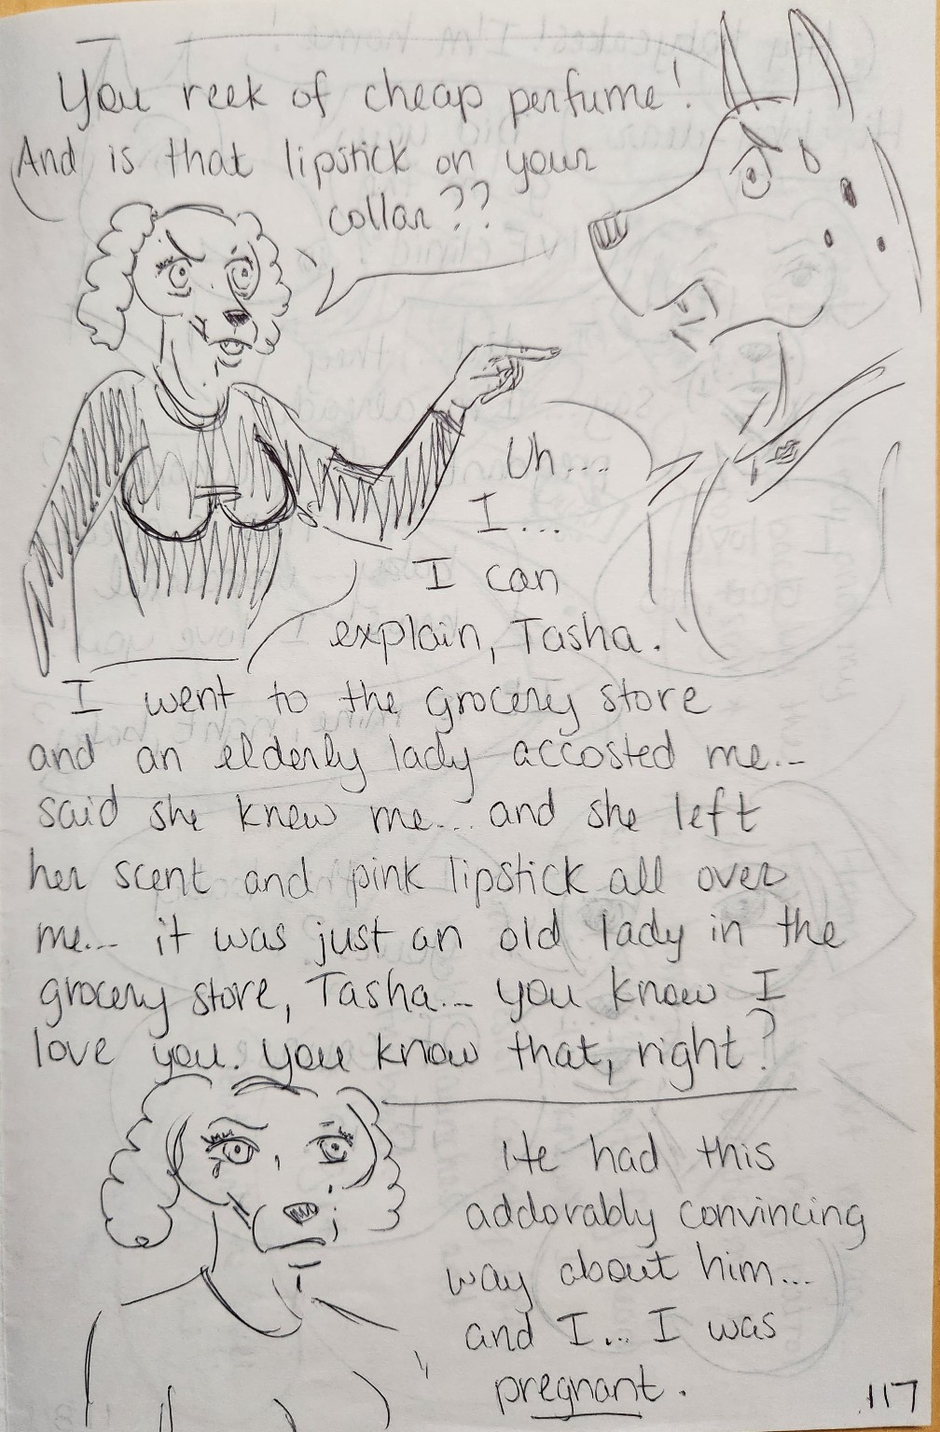 You reek of cheap perfume!
And is that lipstick on your
collar??
Uh...
I...
I can
explain, Tasha.
I went to the grocery store
and an elderly lady accosted me...
said she knew me... and she left
her scent and pink lipstick all over
me... it was just an old lady in the
grocery store, Tasha... you know I
love you. you know that, right?
He had this
addorably convincing
way about him...
and I... I was
pregnant.
117